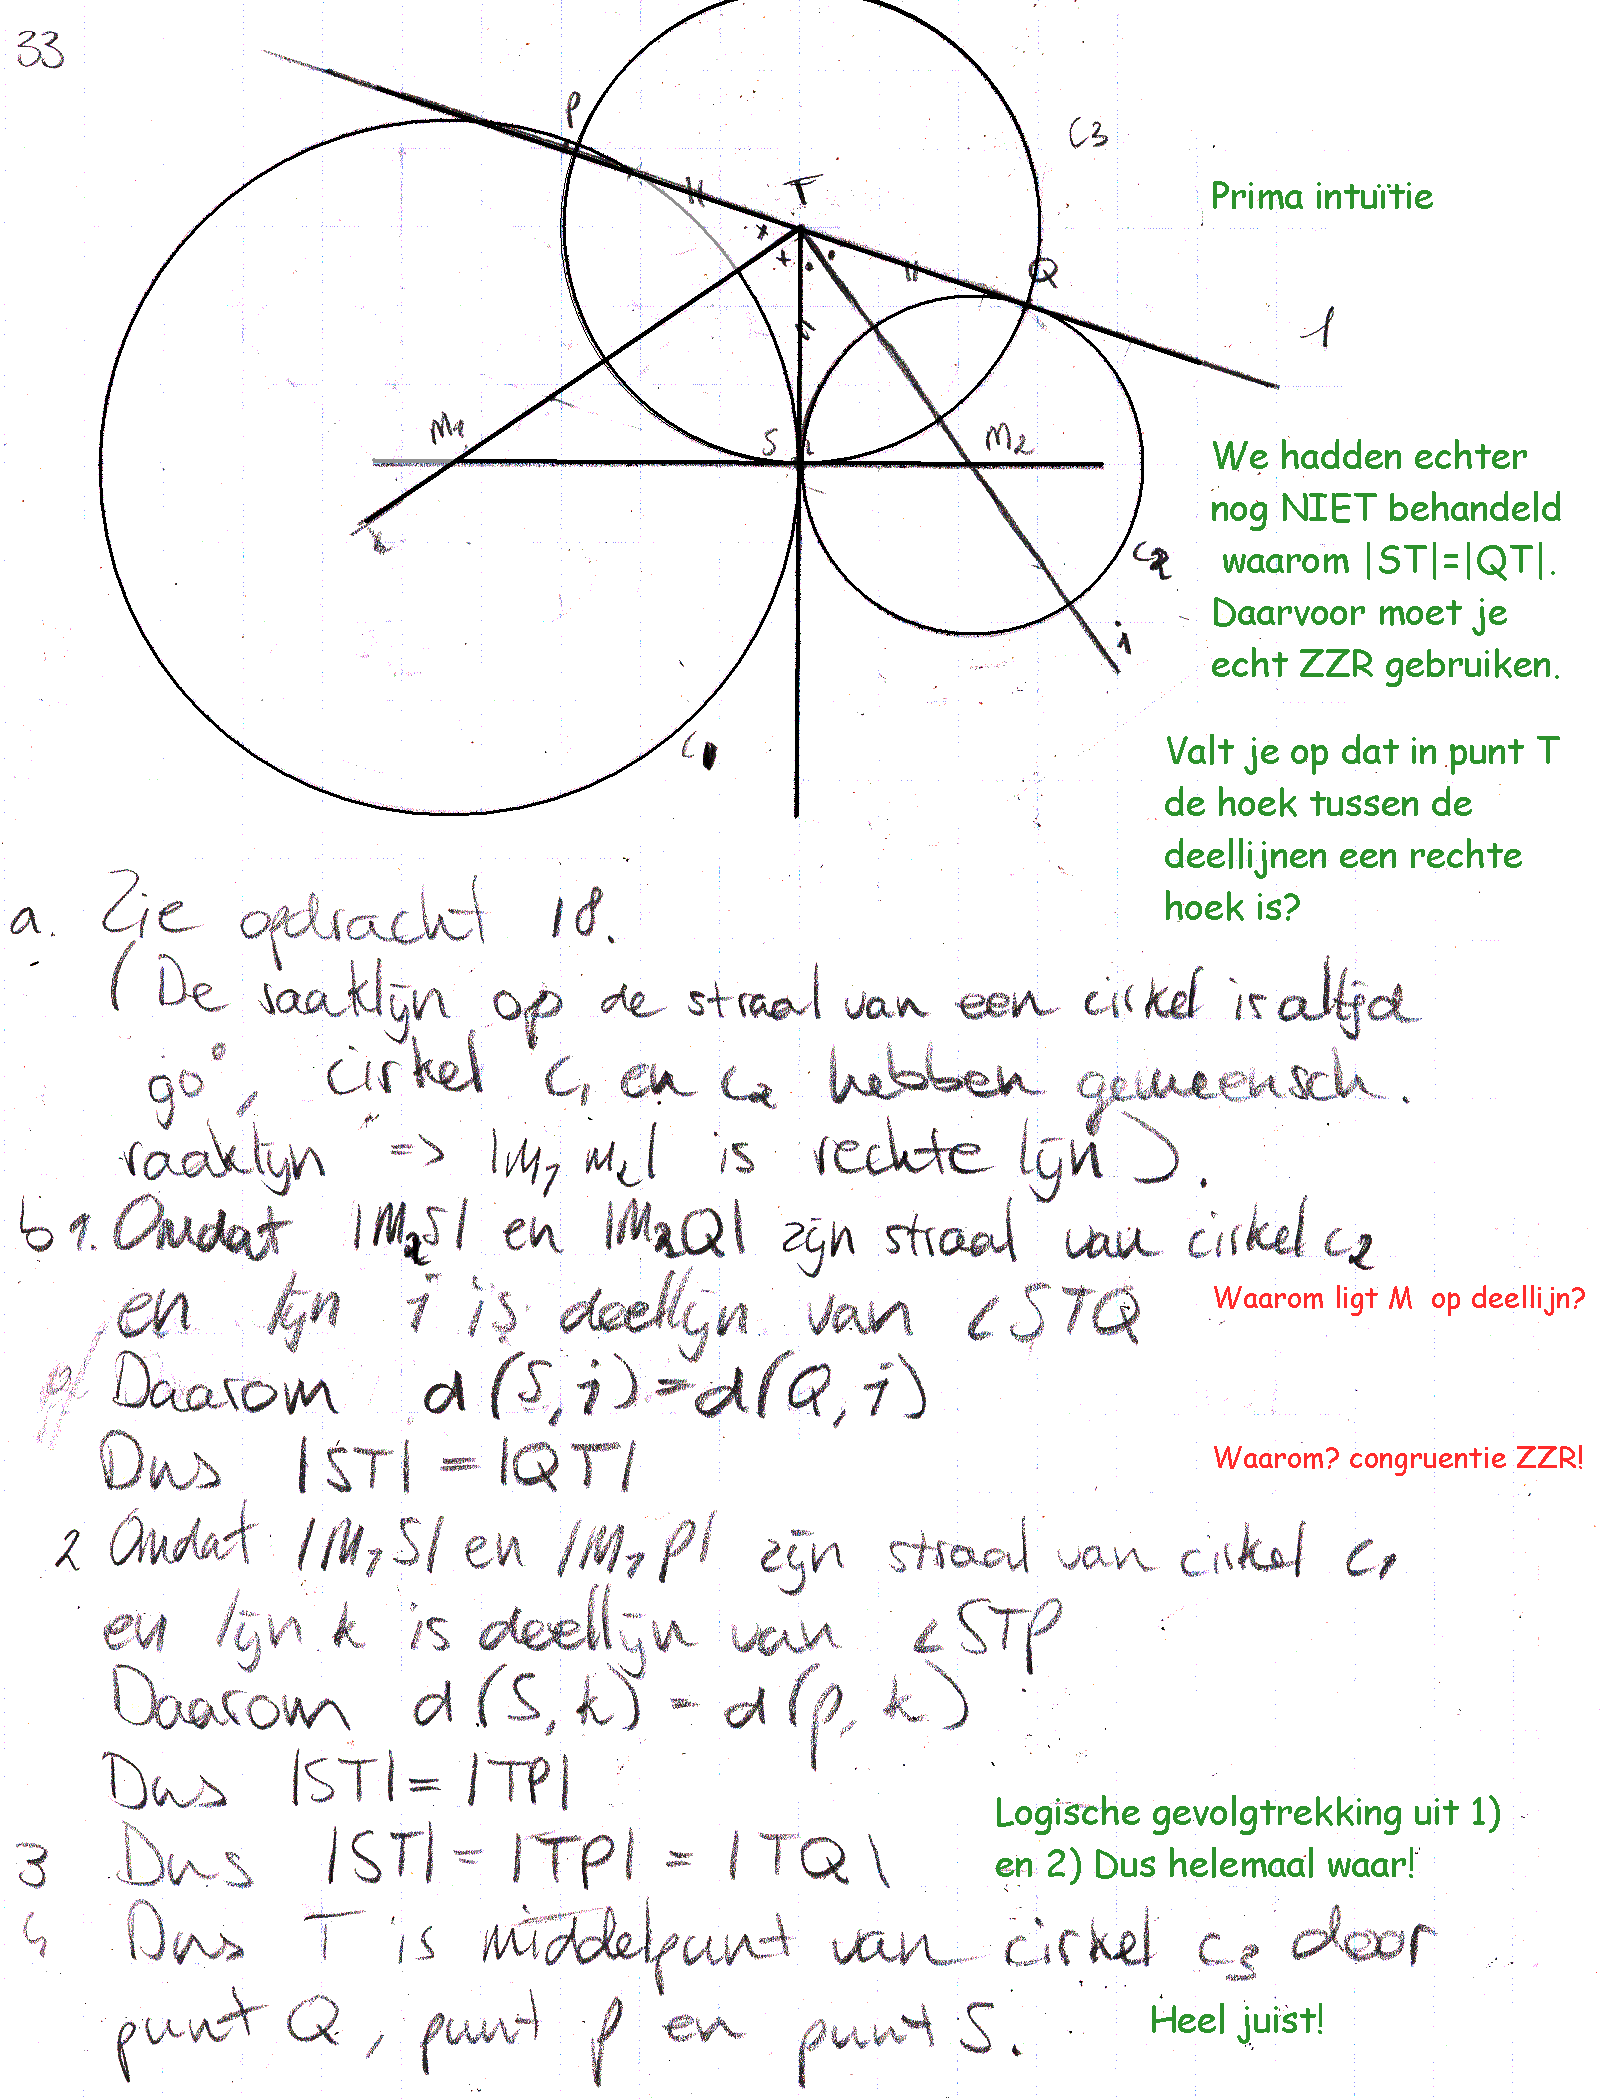 33
P
C3
T
Prima intuïtie
Q
l
M1
S
M2
We hadden echter
nog NIET behandeld
waarom |ST|=|QT|.
Daarvoor moet je
echt ZZR gebruiken.
k
C2
i
C1
Valt je op dat in punt T
de hoek tussen de
deellijnen een rechte
hoek is?
a. Zie opdracht 18.
(De raaklijn op de straal van een cirkel is altijd
90°, cirkel C1 en C2 hebben gemeensch.
raaklijn => |M1 M2| is rechte lijn).
b 1. Omdat |M2S| en |M2Q| zijn straal van cirkel C2
en lijn i is deellijn van ∠STQ
Waarom ligt M op deellijn?
Daarom d(S,i)=d(Q,i)
Dus |ST| = |QT|
Waarom? congruentie ZZR!
2 Omdat |M1S| en |M1P| zijn straal van cirkel C1
en lijn k is deellijn van ∠STP
Daarom d(S,k) = d(P,k)
Dus |ST| = |TP|
Logische gevolgtrekking uit 1)
en 2) Dus helemaal waar!
3 Dus |ST| = |TP| = |TQ|
4 Dus T is middelpunt van cirkel C3 door
punt Q, punt P en punt S.
Heel juist!